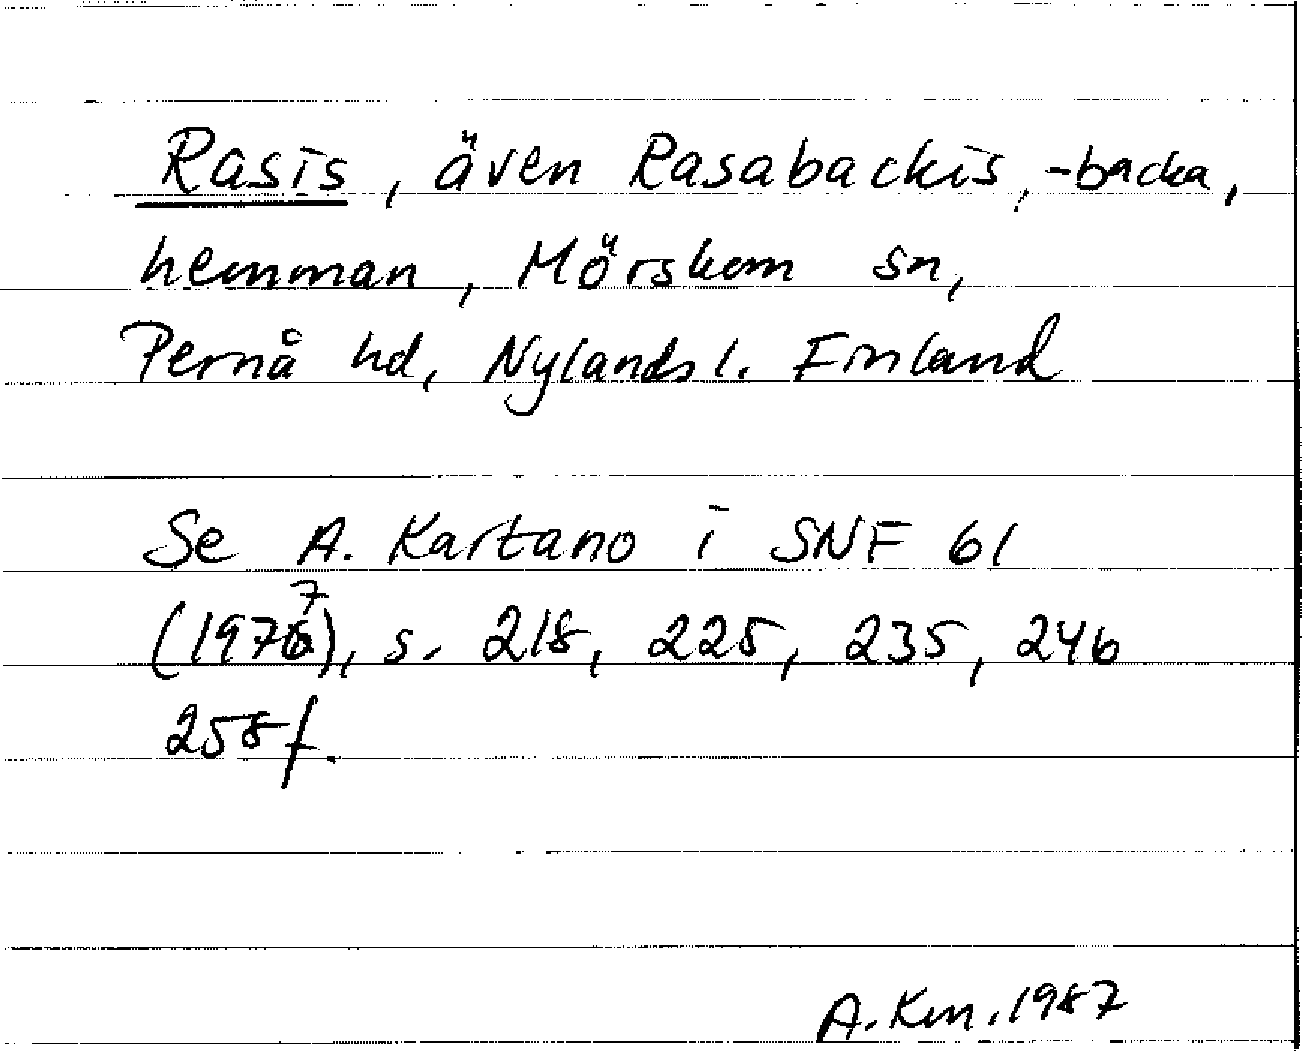 Rasis, även Rasabackis, -backa,
hemman, Mörskom sn,
Pernå hd, Nylands l. Finland
Se A. Kartano i SNF 61
(1977), s. 218, 225, 235, 246
258 f.
A. Km. 1987